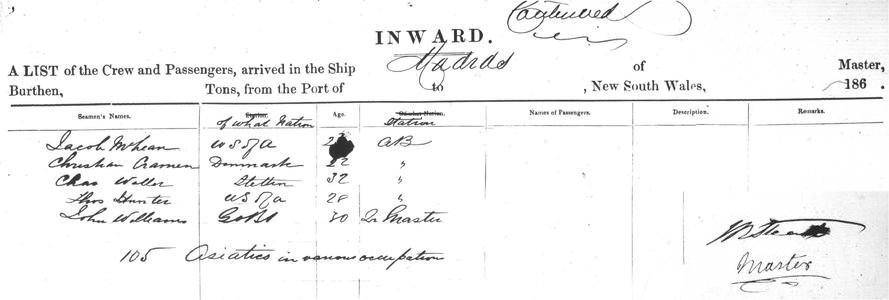 Continued
INWARD.
A LIST of the Crew and Passengers, arrived in the Ship Madras of Master,
Burthen, Tons, from the Port of to , New South Wales, 186 .
Seamen's Names. Station. of what Nation Age. Of what Nation. Station Names of Passengers. Description. Remarks.
Jacob McLean U S of A AB
Christian Cramen Denmark 22 "
Chas Weller Stettin 32 "
Thos Hunter U S of A 28 "
John Williams 30 Qr Master
105 Asiatics in various occupation
Master